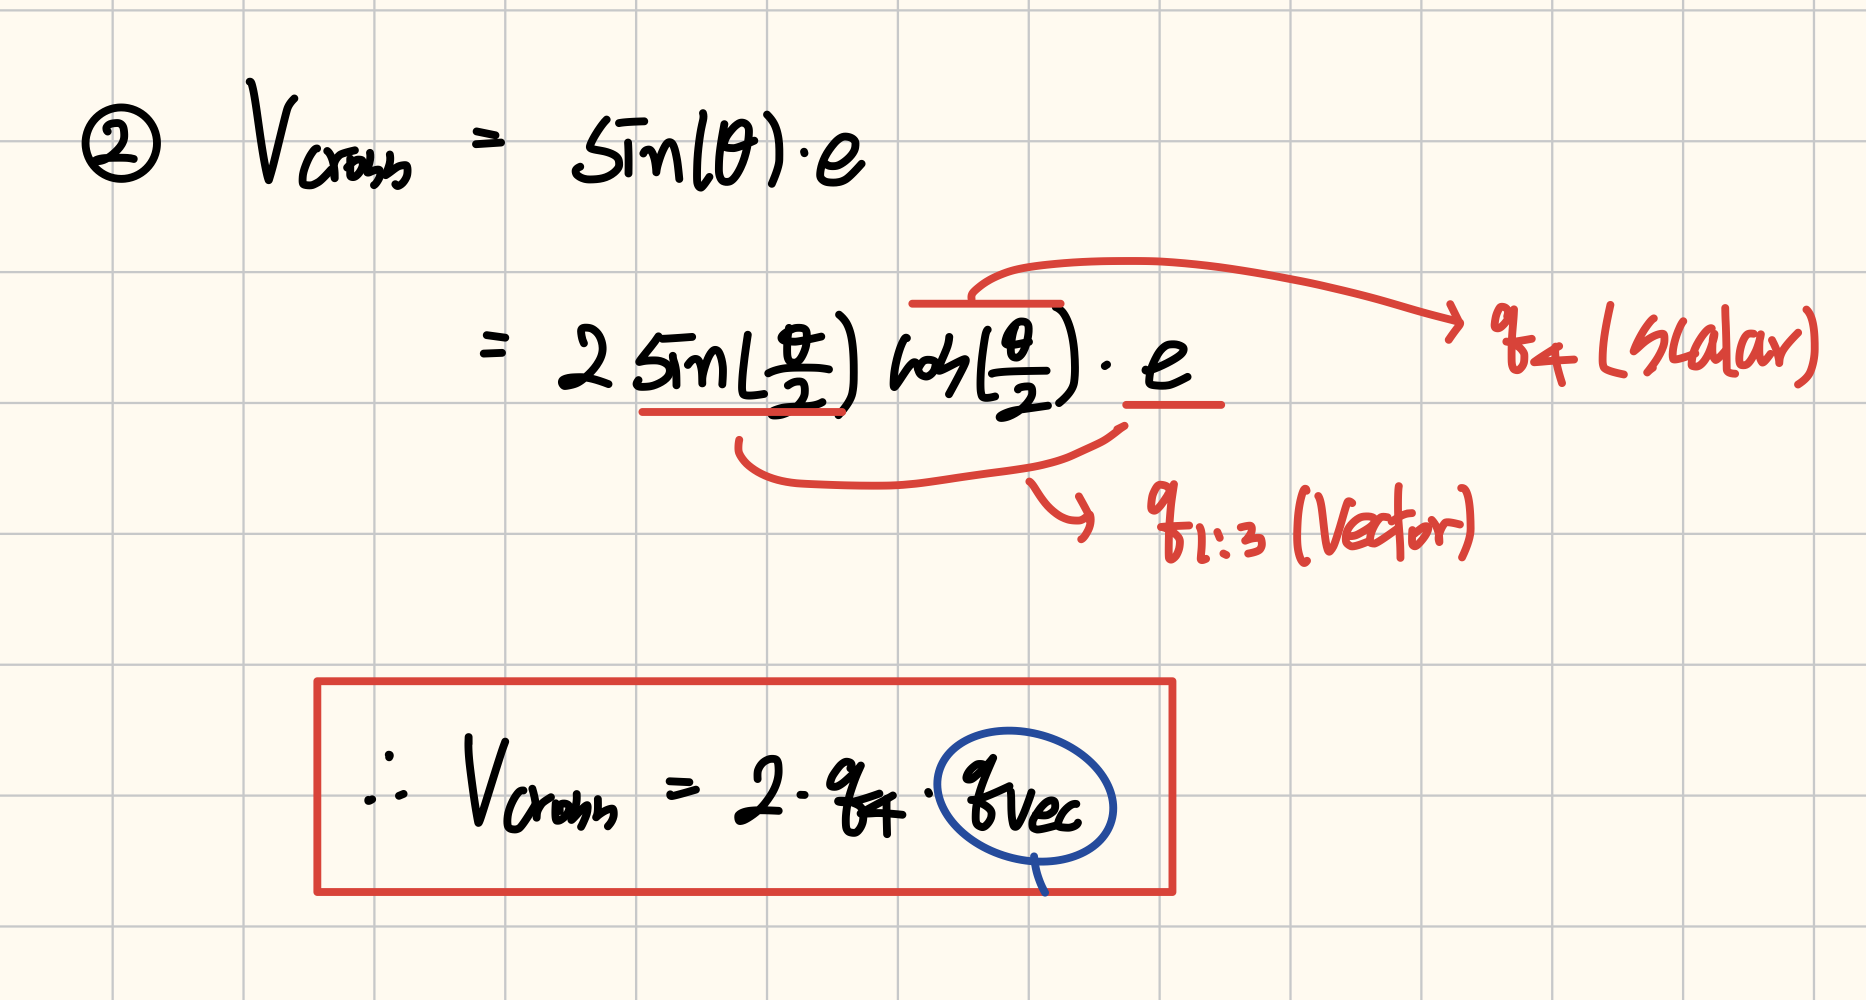 ② V_cross = sin(θ)·e
= 2 sin(θ/2) cos(θ/2) · e
q_4 (scalar)
q_1:3 (Vector)
∴ V_cross = 2 · q_4 · q_vec